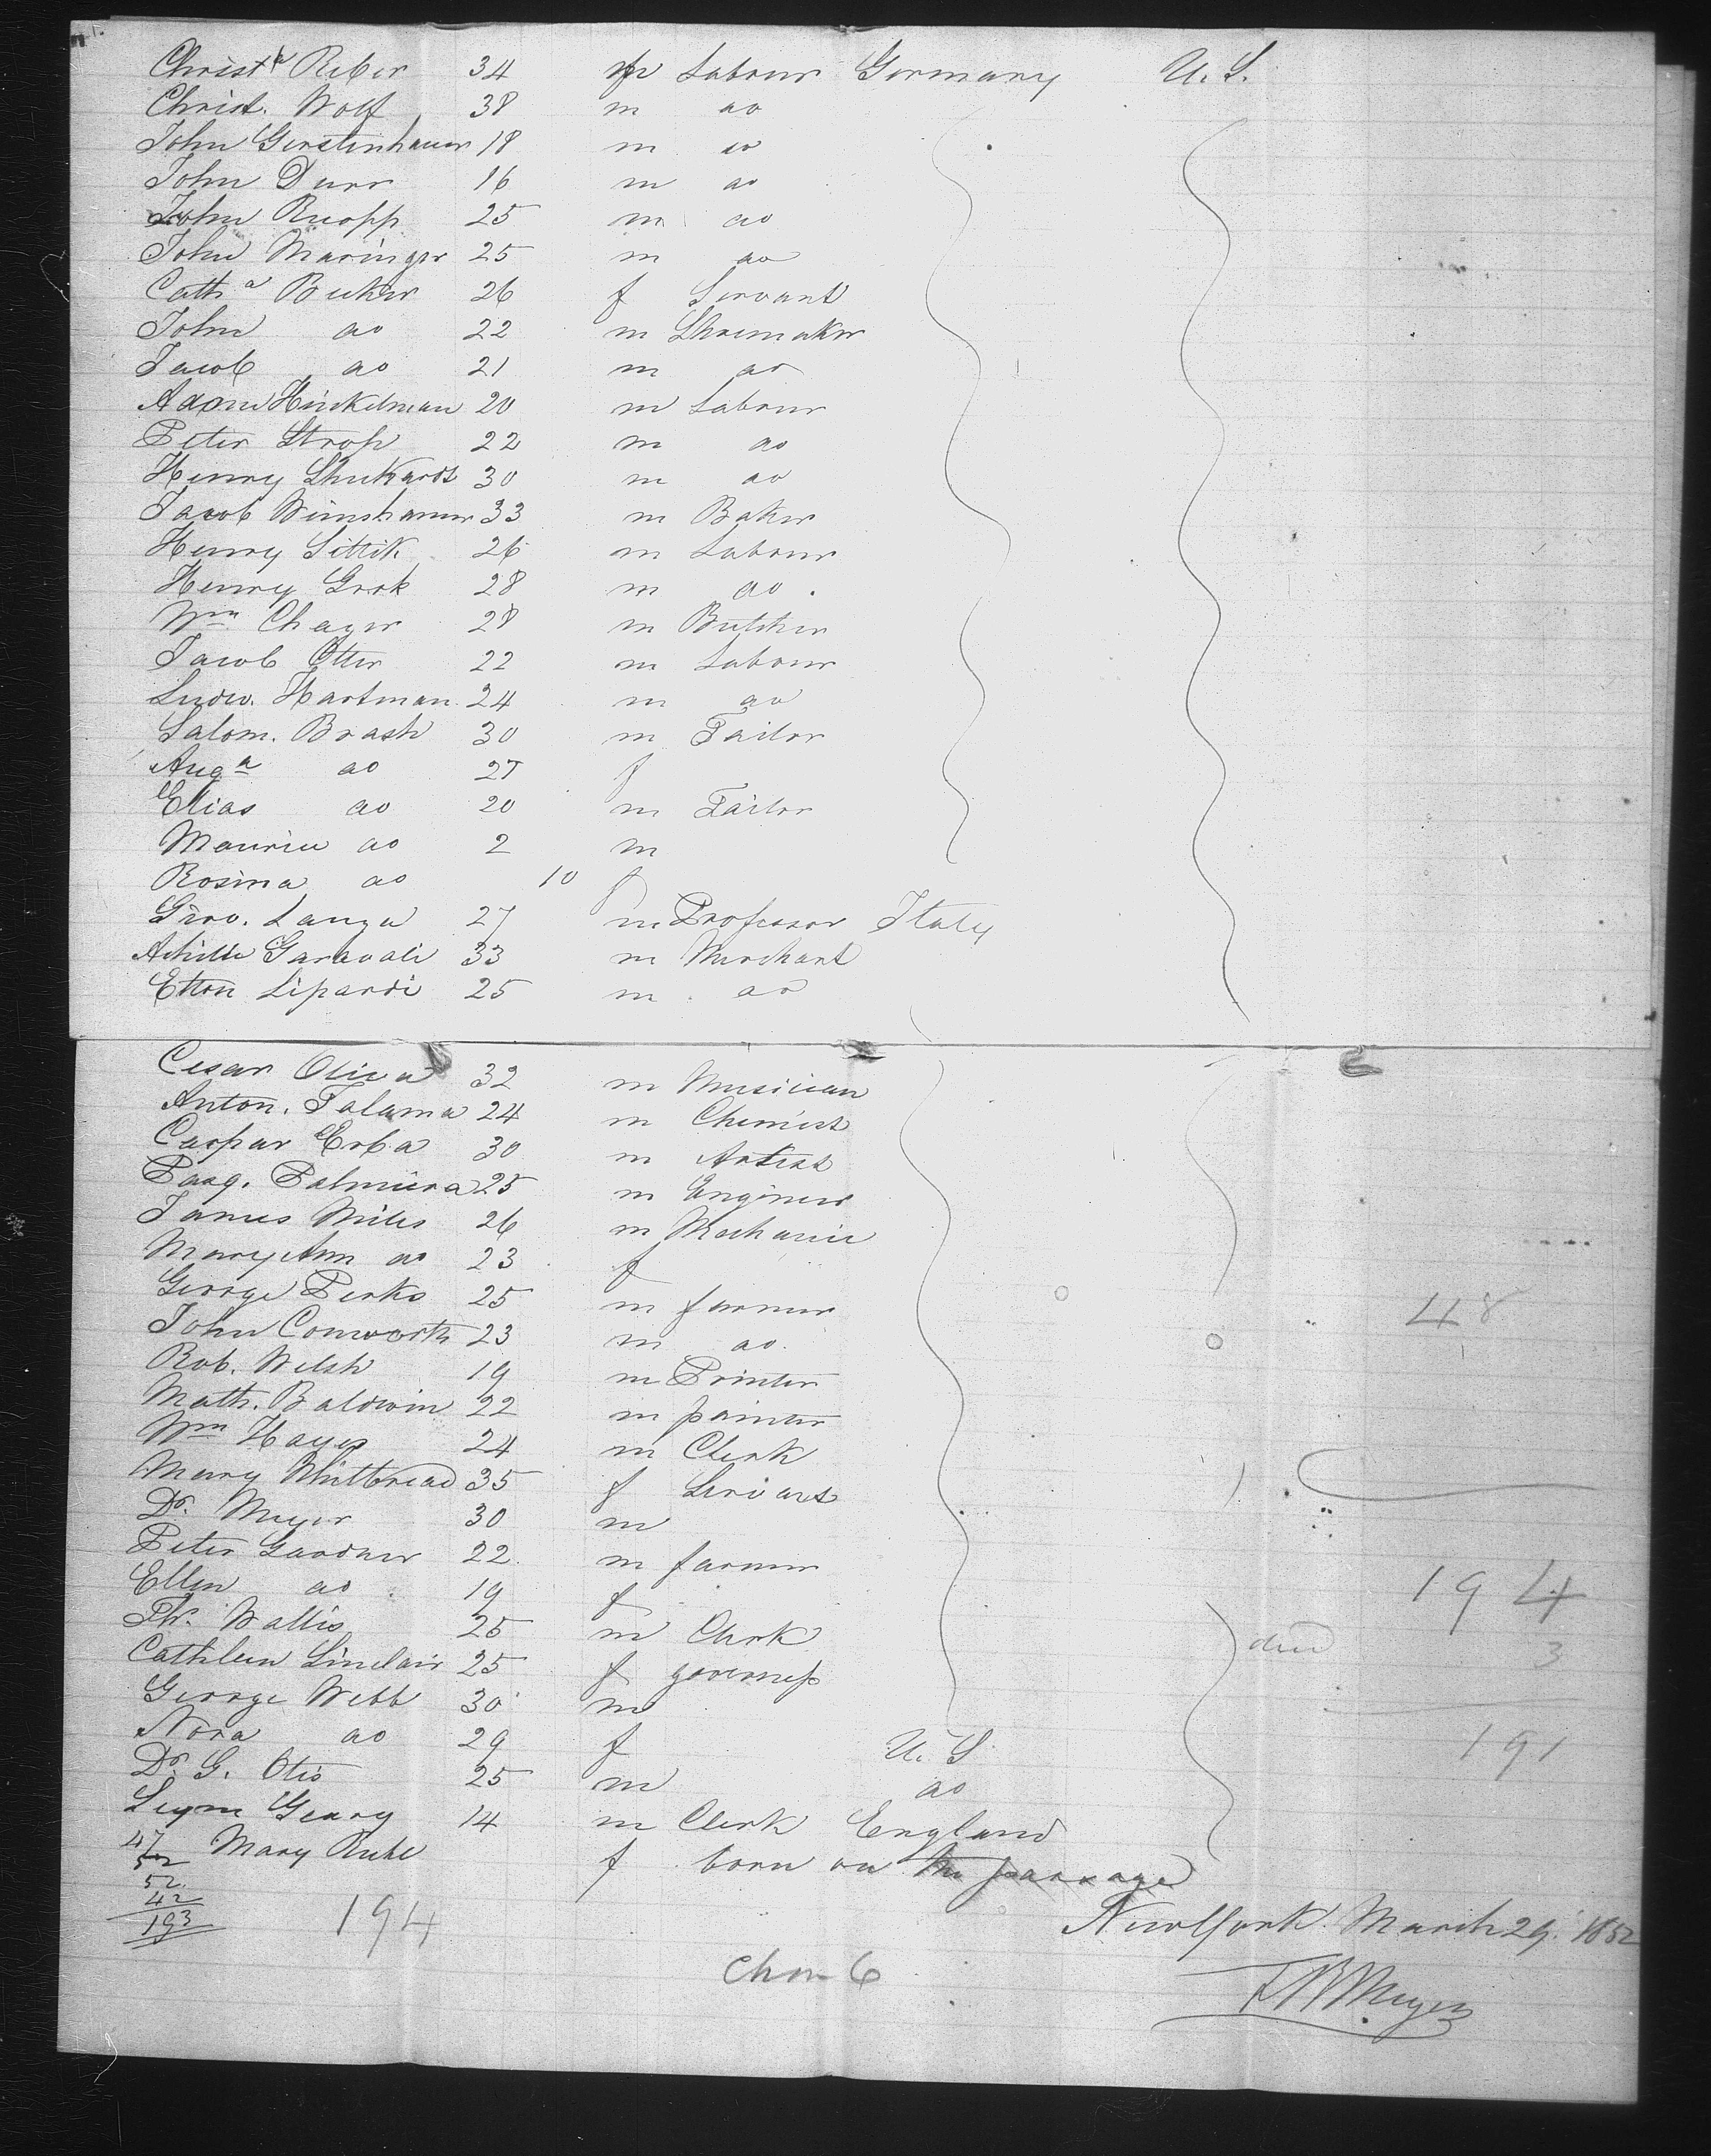 Christ^a Reber 34 m Labour Germany U.S.
Christ. Wolf 38 m do
John Gerstenhauer 18 m do
John Durr 16 m do
John Ruopp 25 m do
John Maringer 25 m do
Cath^a Beeker 26 f Servant
John do 22 m Shoemaker
Jacob do 21 m do
Adam Hinkelman 20 m Labour
Peter Stroh 22 m do
Henry Shukardt 30 m do
Jacob 33 m Baker
Henry Sittik 26 m Labour
Henry Grok 28 m do
Wm Chayer 28 m Butcher
Jacob Otter 22 m Labour
Ludw. Hartman 24 m do
Salom. Brash 30 m Tailor
Aug^a do 27 f
Elias do 20 m Tailor
Maurice do 2 m
Rosina do 10 f
Giov. Langa 27 m Professor Italy
Achille Garavali 33 m Merchant
Ettori Lipardi 25 m do
Cesar Oliva 32 m Musician
Anton. Talama 24 m Chemist
Caspar Erba 30 m Artist
Pasq. Palmiera 25 m Engineer
James Miles 26 m Mechanic
Mary Ann do 23 f
George Perks 25 m farmer
John Conworth 23 m do
48
Rob. Welsh 19 m Printer
Math. Baldwin 22 m painter
Wm Hayes 24 m Clerk
Mary Whitbread 35 f Servant
Dr. Meyer 30 m
Peter Gardner 22 m farmer
Ellen do 19 f
194
Th. Wallis 25 m Clerk
died 3
Cathleen Sinclair 25 f governess
George Webb 30 m
191
Nora do 29 f U.S
Dr. G. Otis 25 m do
Seym Geary 14 m Clerk England
47 Mary Ruhl f born on the passage
52
52
42
193
194
New York March 29. 1852
Chm 6
Meyer